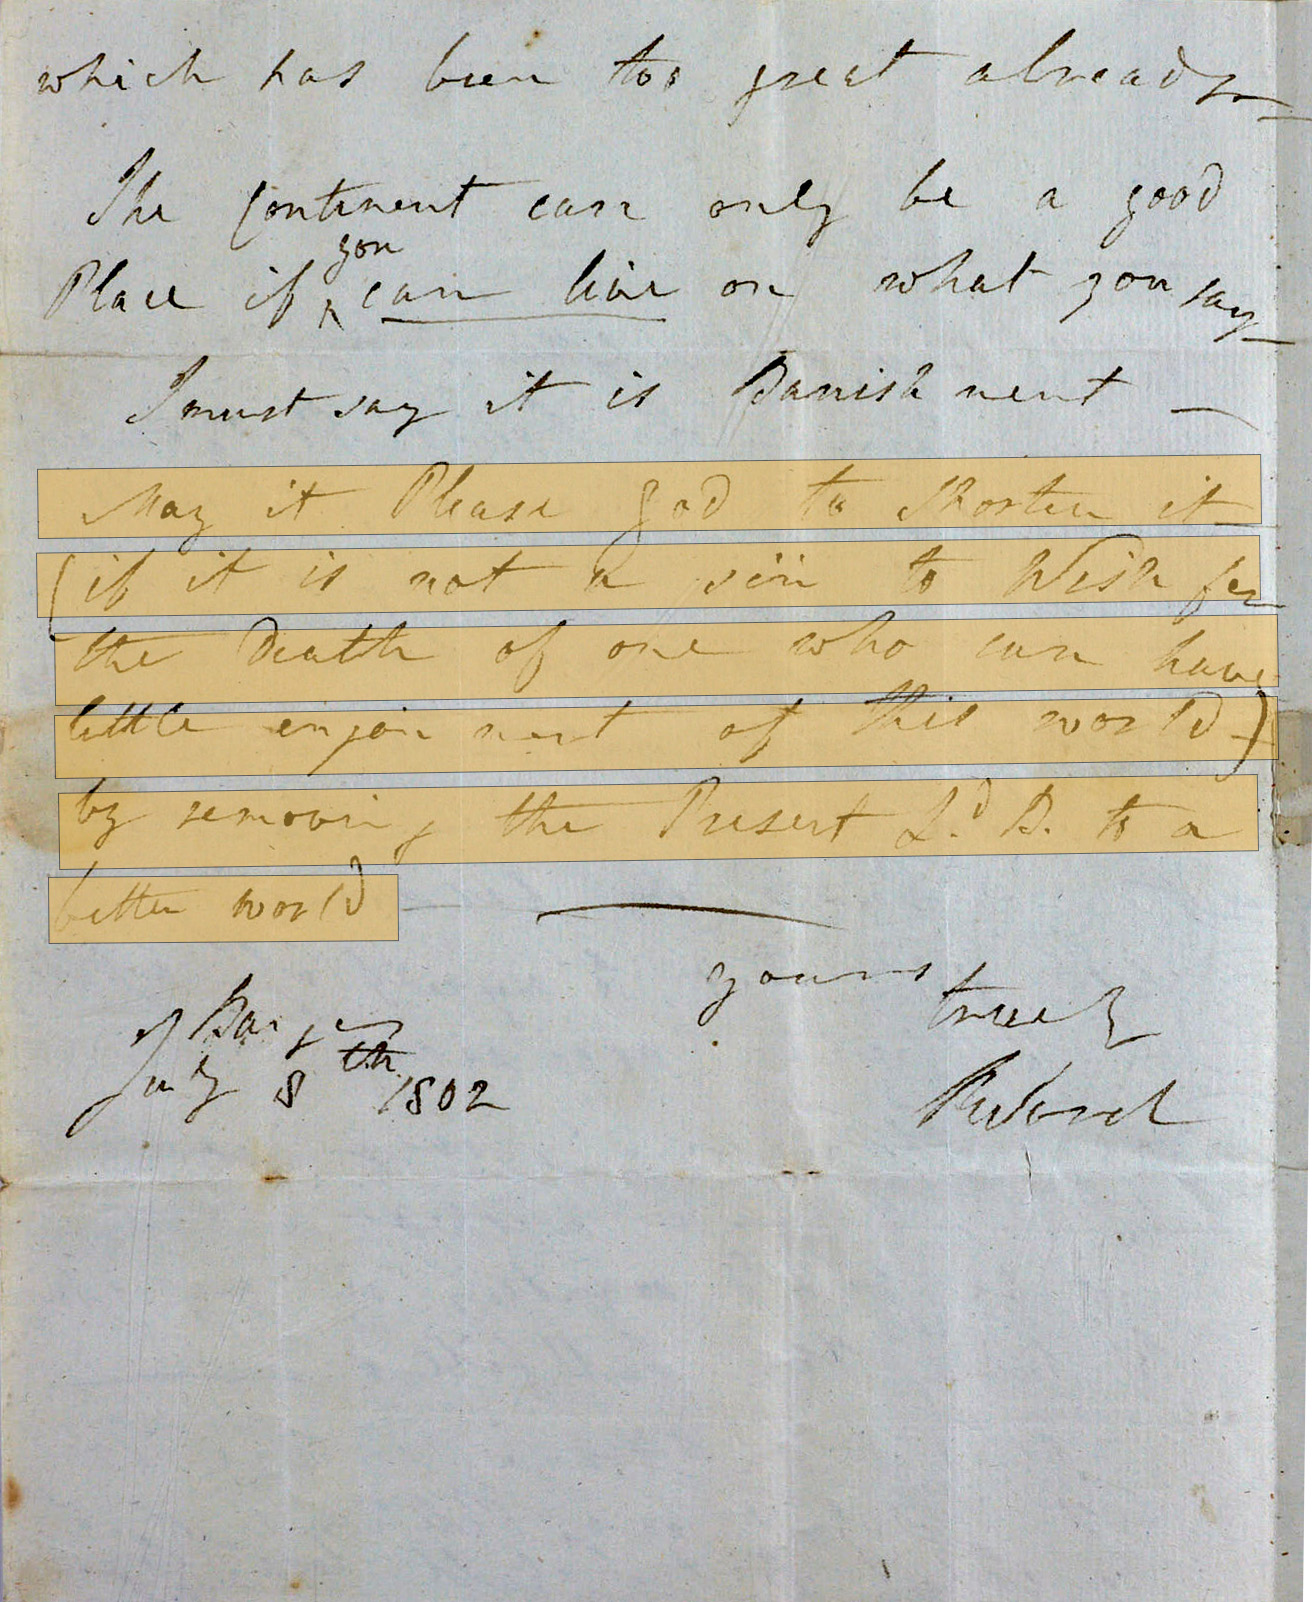 which has been too great already
The Continent can only be a good
Place if you can live on what you say
I must say it is Banishment —
May it Please god to shorten it
(if it is not a sin to Wish for
the Death of one who can have
little enjoiment of this world)
by removing the Present Ld. B. to a
better world —
yours truely
Bangor
July 8th 1802